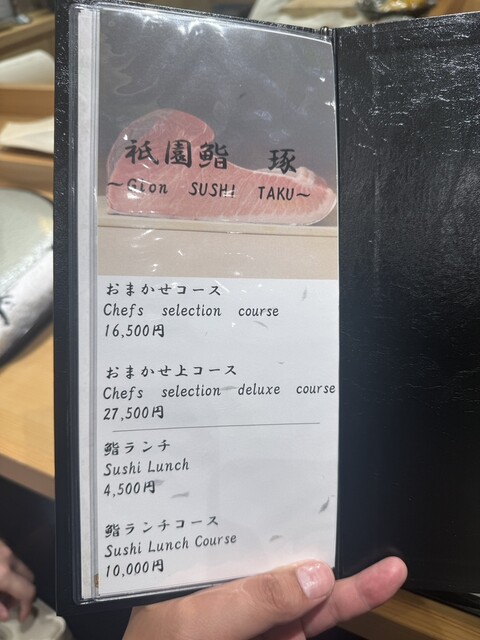 祇園鮨 琢
～Gion SUSHI TAKU～
おまかせコース
Chefs selection course
16,500円
おまかせ上コース
Chefs selection deluxe course
27,500円
鮨ランチ
Sushi Lunch
4,500円
鮨ランチコース
Sushi Lunch Course
10,000円